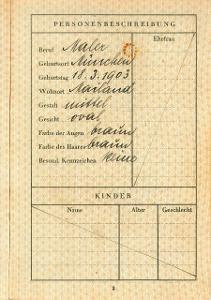 PERSONENBESCHREIBUNG
Ehefrau
Beruf Maler
Geburtsort München
Geburtstag 18.3.1903
Wohnort Mailand
Gestalt mittel
Gesicht oval
Farbe der Augen braun
Farbe des Haares braun
Besond. Kennzeichen keine
KINDER
Name Alter Geschlecht
3